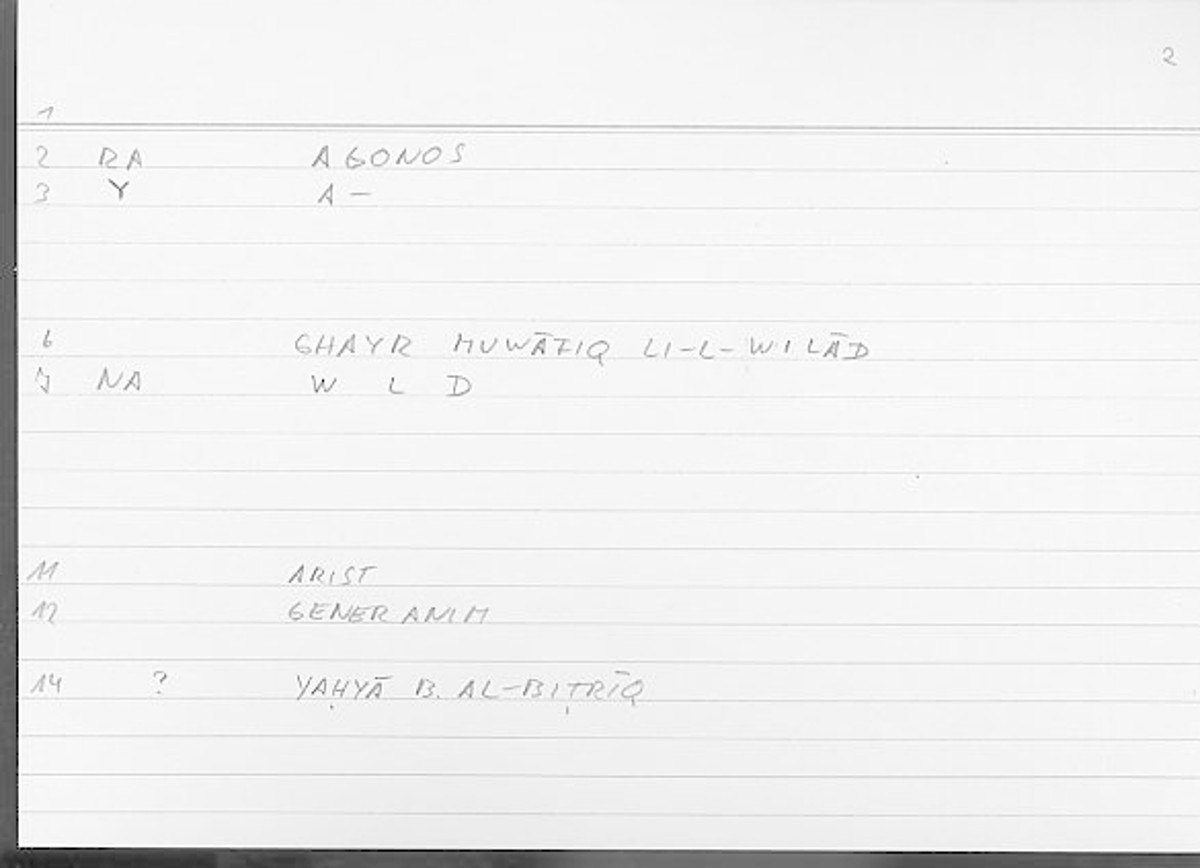 2
1
2 RA AGONOS
3 Y A –
6 GHAYR MUWĀFIQ LI-L-WILĀD
7 NA W L D
11 ARIST
12 GENER ANIM
14 ? YAḤYĀ B. AL-BIṬRĪQ